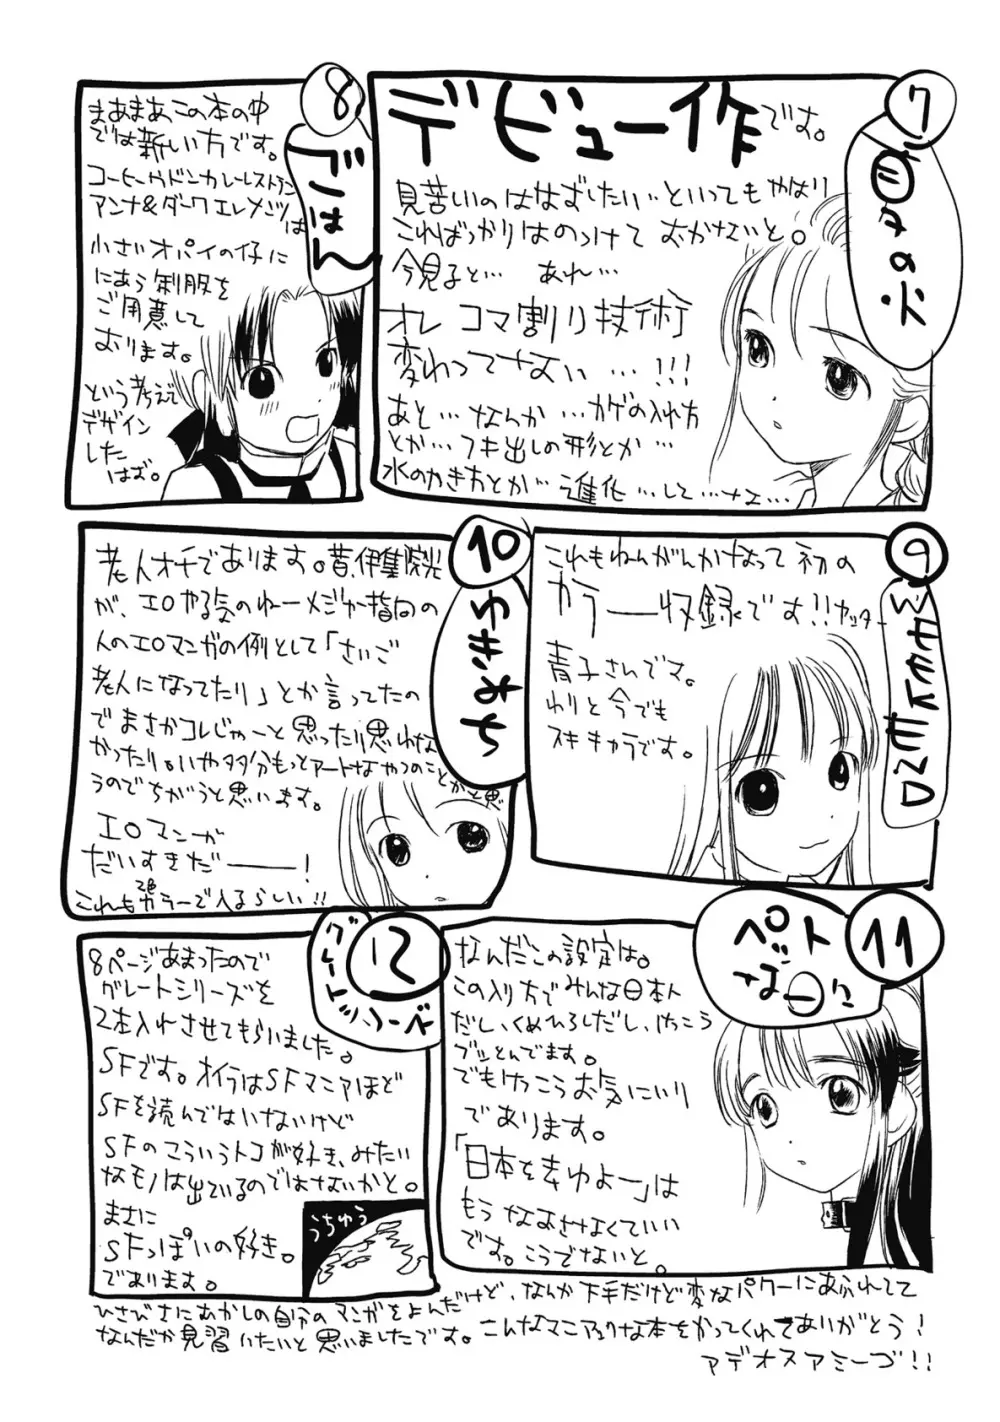 7
夏の火
デビュー作です。
見苦しいのははずしたい…といってもやはり
こればっかりはのっけておかないと。
今見ると… あれ…
オレ コマ割り技術
変わってない…!!!
あと…なんか…カゲの入れ方
とか…フキ出しの形とか…
水のかき方とか…進化…して…な…
8
ごはん
まあまあこの本の中
では新しい方です。
コーヒーやドンカレーレストラン
アンナ&ダークエレメンツは
小さいオパイの仔に
にあう制服を
ご用意して
おります。
という考えで
デザイン
した
はず。
9
WEEKEND
これもねんがんかなって初の
カラー収録です!!ヤッター
青子さんでマ。
わりと今でも
スキキャラです。
10
ゆきおち
老人オチであります。昔、伊集院光
が、エロやる気のねーメジャー指向の
人のエロマンガの例として「さいご
老人になってたり」とか言ってたの
でまさかコレじゃーと思ったり思わな
かったり。いや多分もっとアートなやつのことかと思
うのでちがうと思います。
エロマンガ
だいすきだーー!
これも2色カラーで入るらしい!!
11
ペットな日々
なんだこの設定は。
この入り方でみんな日本人
だし、くめひろしだし、けっこう
ブッとんでます。
でもけっこうお気にいり
であります。
「日本を幸ゆよー」は
もうなおさなくていい
です。こうでないと。
12
8ページあまったので
グレートシリーズを
2本入れさせてもらいました。
SFです。オイラはSFマニアほど
SFを読んではいないけど
SFのこういうトコが好き、みたい
なモノは出ているのではないかと。
まさに
SFっぽいの好き。
であります。
うちゅう
ひさびさにむかしの自分のマンガをよんだけど、なんか下手だけど変なパワーにあふれてて
なんだか見習いたいと思いましたです。こんなマニアックな本をかってくれてありがとう!
アデオスアミーゴ!!